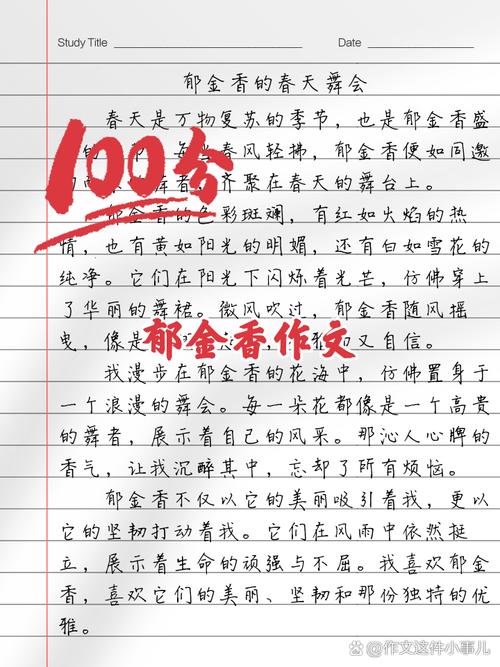 Study Title
Date
郁金香的春天舞会
春天是万物复苏的季节,也是郁金香盛
100分
春风轻拂,郁金香便如同邀
舞者,齐聚在春天的舞台上。
郁金香的色彩斑斓,有红如火焰的热
情,也有黄如阳光的明媚,还有白如雪花的
纯净。它们在阳光下闪烁着光芒,仿佛穿上
了华丽的舞裙。微风吹过,郁金香随风摇
曳,像是
又自信。
郁金香作文
我漫步在郁金香的花海中,仿佛置身于
一个浪漫的舞会。每一朵花都像是一个高贵
的舞者,展示着自己的风采。那沁人心脾的
香气,让我沉醉其中,忘却了所有烦恼。
郁金香不仅以它的美丽吸引着我,更以
它的坚韧打动着我。它们在风雨中依然挺
立,展示着生命的顽强与不屈。我喜欢郁金
香,喜欢它们的美丽、坚韧和那份独特的优
雅。
头条 @作文这件小事儿